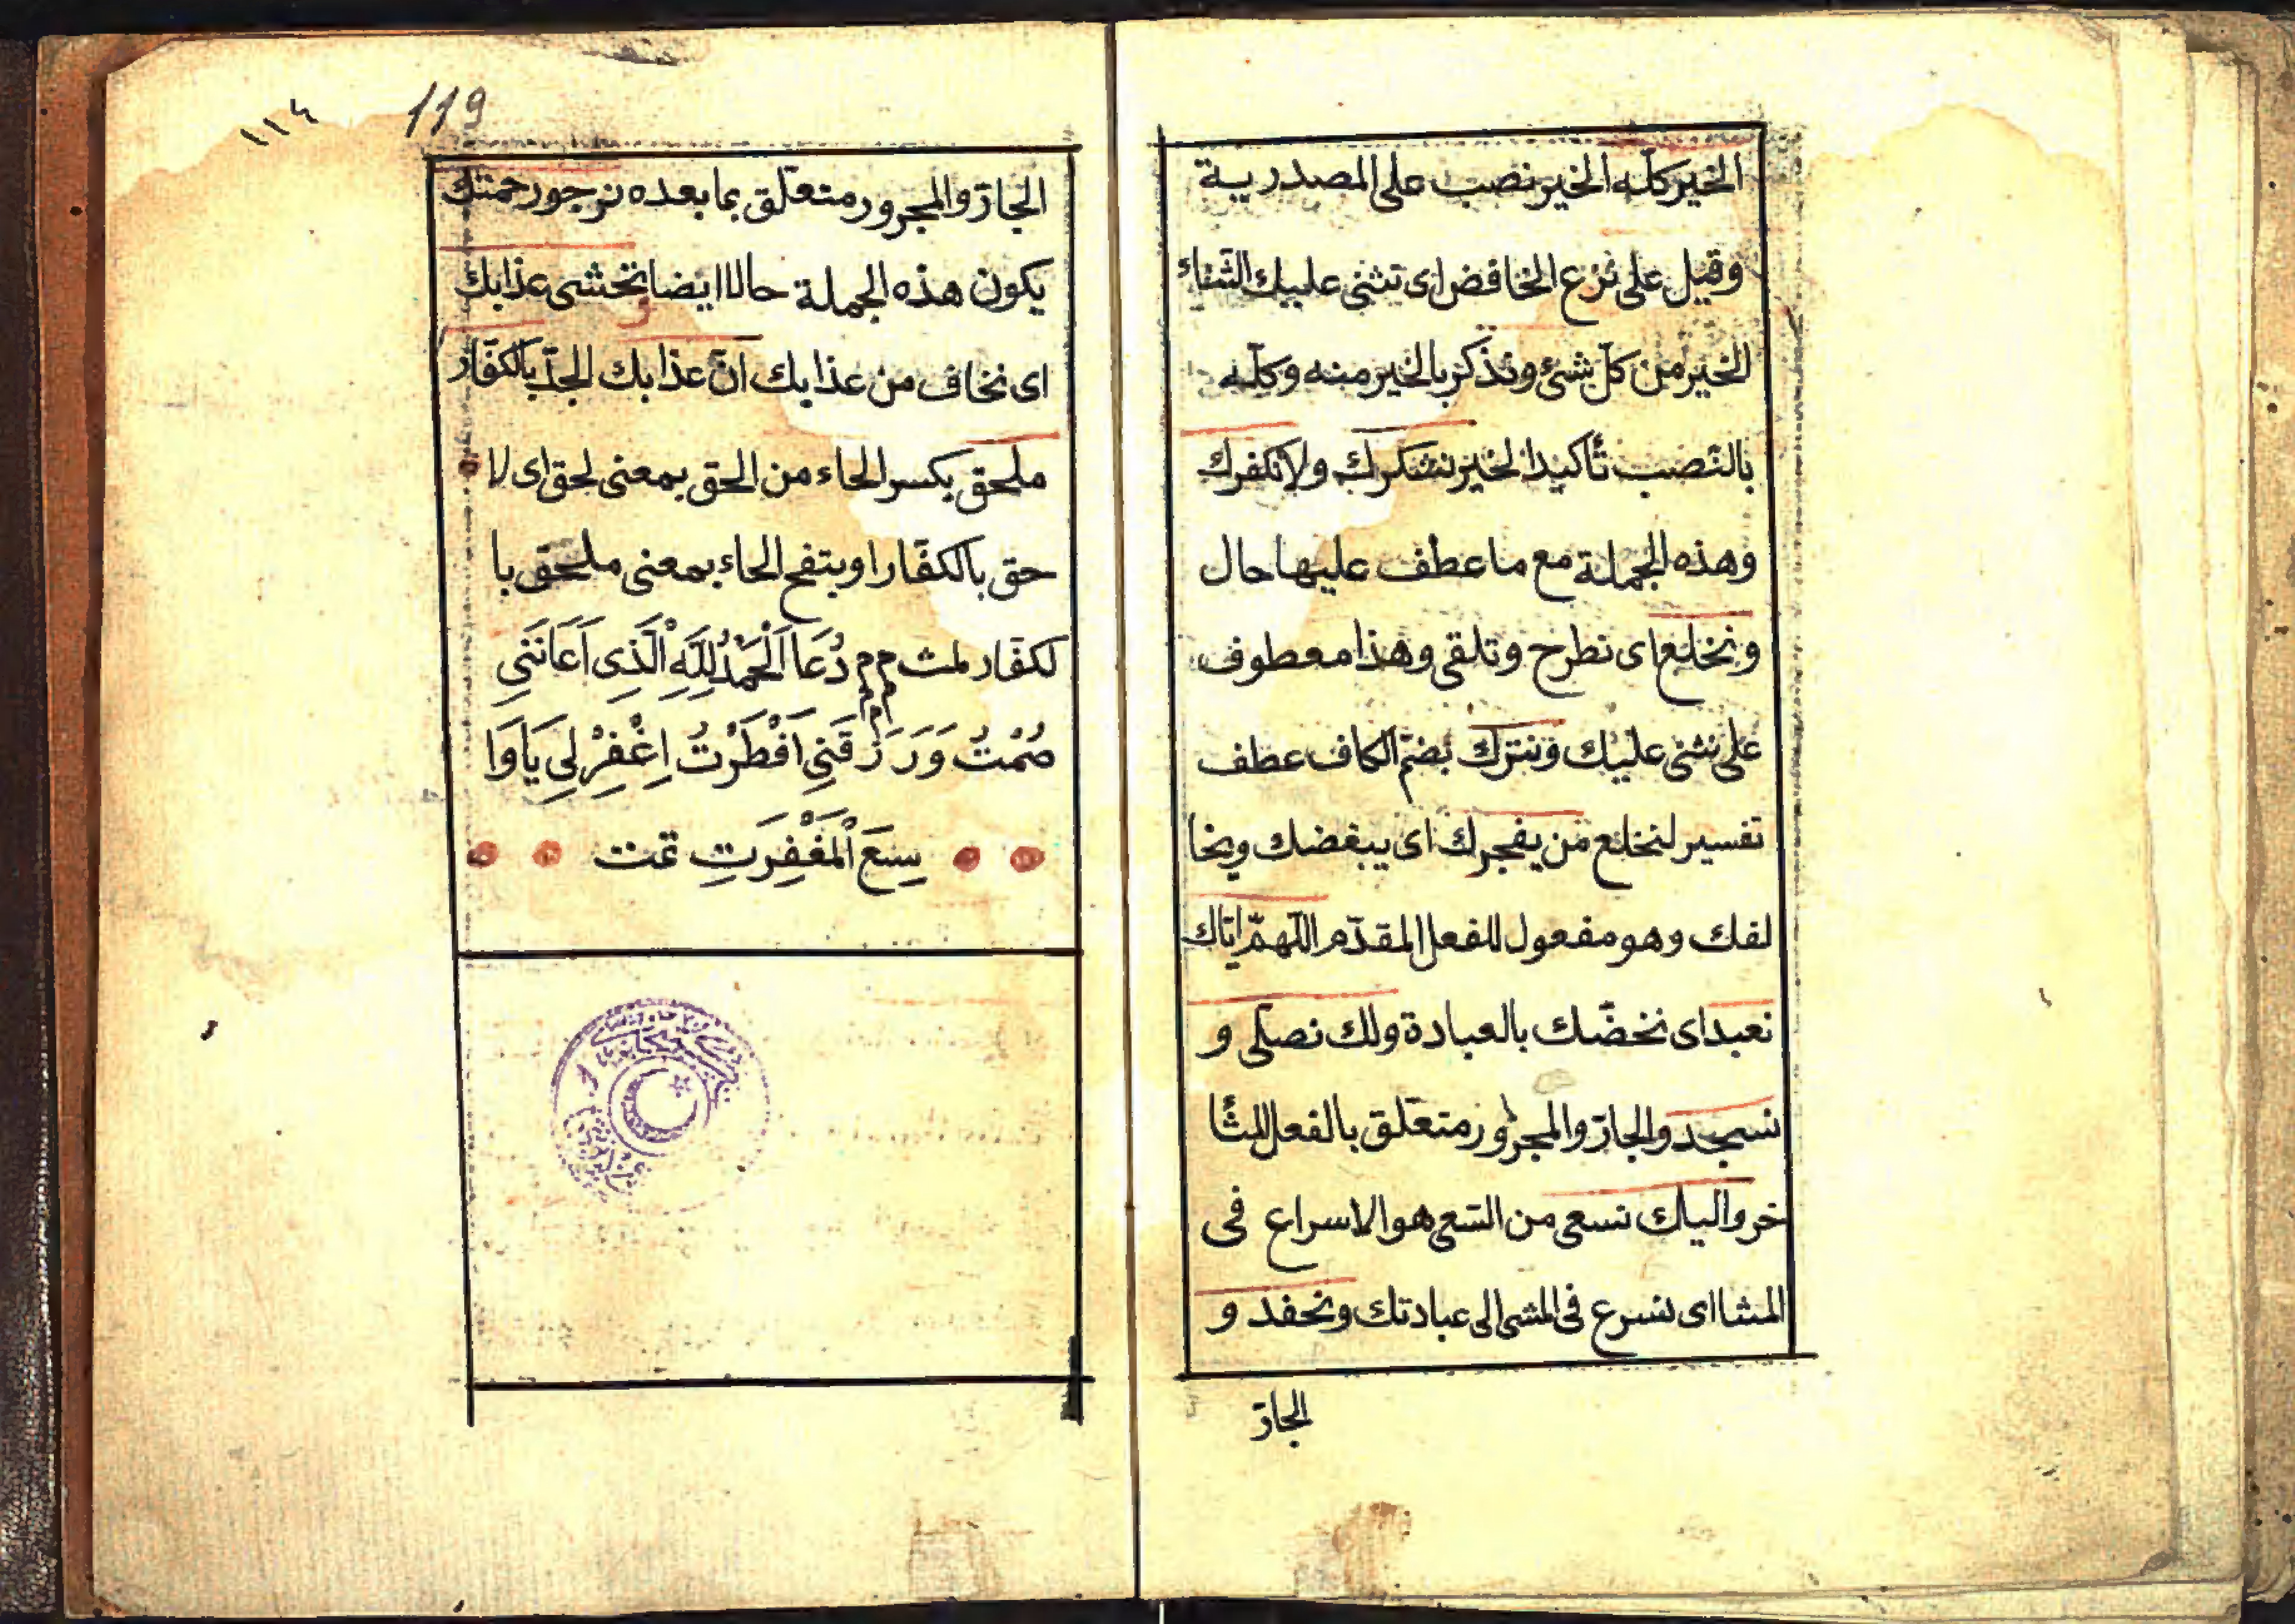 الخير كلّه الخير نصب على المصدرية
وقيل على نزع الخافض اى تثنى عليك الثناء
الخير من كلّ شئ ونذكر بالخير منه وكلّه
بالنّصب تأكيدا لخير نشكرك ولا نكفرك
وهذه الجملة مع ما عطف عليها حال
ونخلع اى نطرح وتلقى وهذا معطوف
على نثنى عليك ونترك بضمّ الكاف عطف
تفسير لنخلع من يفجرك اى يبغضك ويخا
لفك وهو مفعول للفعل المقدّم اللّهمّ ايّاك
نعبد اى نخصّك بالعبادة ولك نصلّى و
نسجد والجارّ والمجرور متعلّق بالفعل للتأ
خر واليك نسعى من السّعى هو الاسراع فى
المشا اى نسرع فى المشى الى عبادتك ونحفد و
الجارّ
119
١١٤
الجارّ والمجرور متعلّق بما بعده نرجو رحمتك
يكون هذه الجملة حالا ايضا نخشى عذابك
اى نخاف من عذابك انّ عذابك الجدّ بالكفّار
ملحق بكسر الحاء من الحق بمعنى لحق اى لا
حق بالكفّار او بتفح الحاء بمعنى ملحق با
لكفّار لمث م م م م دُعَا اَلْحَمْدُ لِلَّهِ الَّذِى اَعَانَنِى
صُمْتُ وَرَزَقَنِى اَفْطَرْتُ اِغْفِرْ لِى يَا وَا
سِعَ الْمَغْفِرَتِ تمت